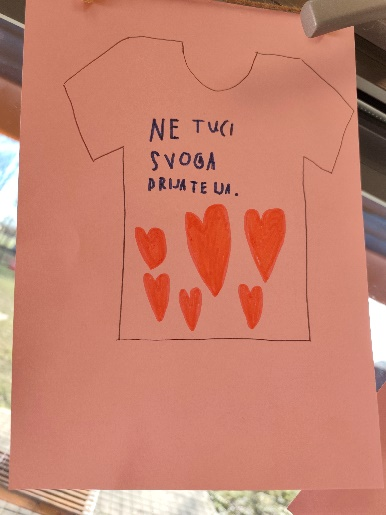 NE TUCI
SVOGA
PRIJATELJA.